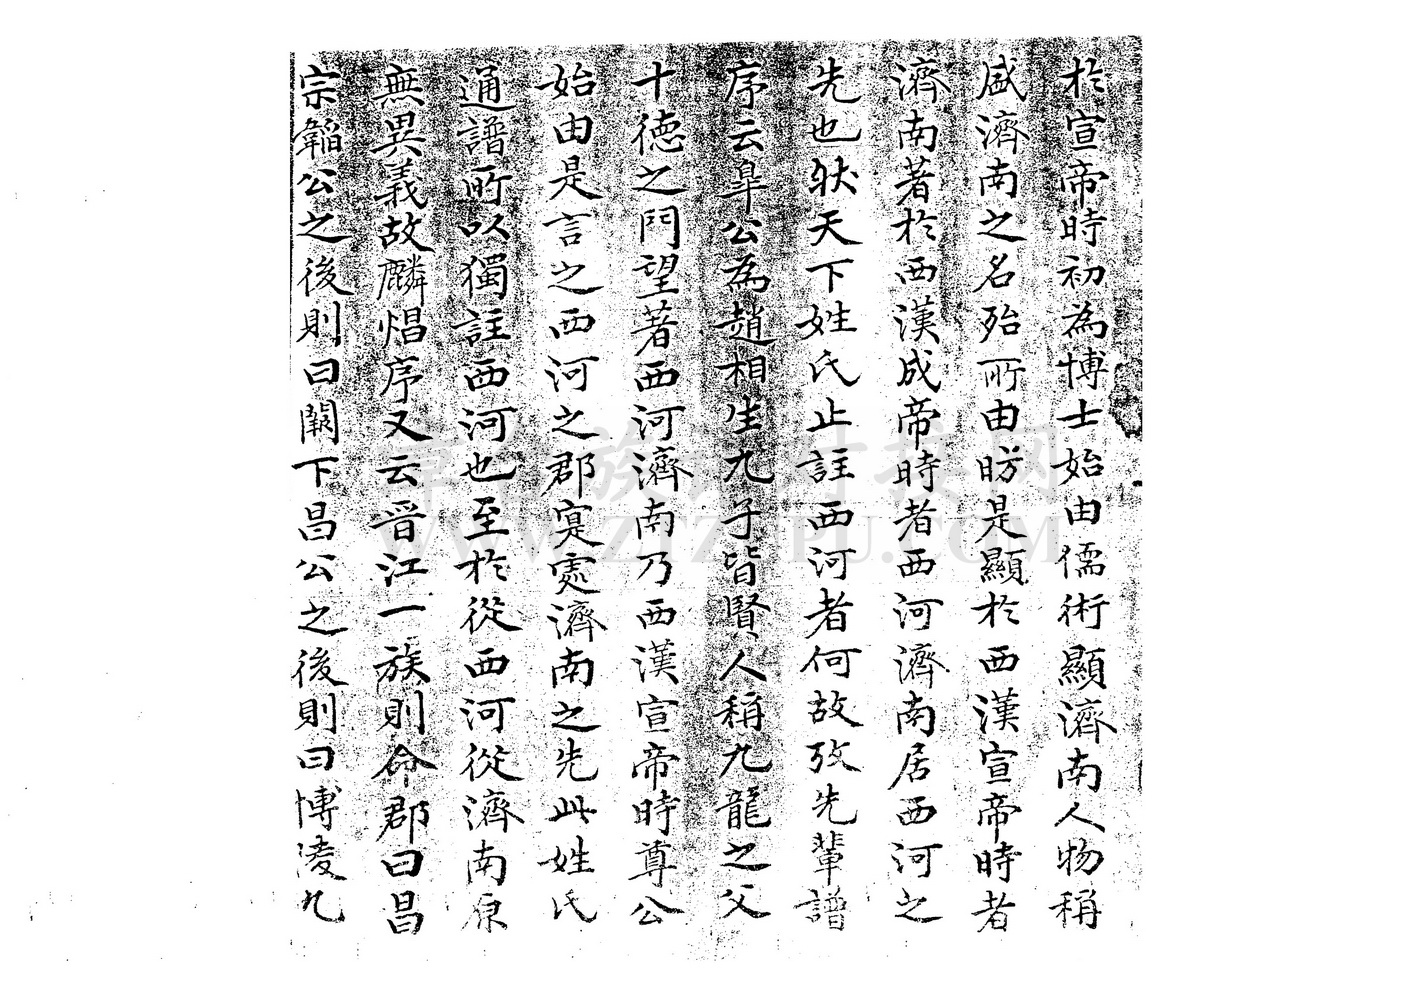 於宣帝時初為博士始由儒術顯濟南人物稱
盛濟南之名殆所由昉是顯於西漢宣帝時者
濟南著於西漢成帝時者西河濟南居西河之
先也狀天下姓氏止註西河者何故攷先輩譜
序云皐公為趙相生九子皆賢人稱九龍之父
十德之門望著西河濟南乃西漢宣帝時尊公
始由是言之西河之郡寔處濟南之先此姓氏
通譜所以獨註西河也至於從西河從濟南原
無異義故麟焻序又云晋江一族則命郡曰昌
宗韜公之後則曰闕下昌公之後則曰博淩九
WWW.ZTZUPU.COM